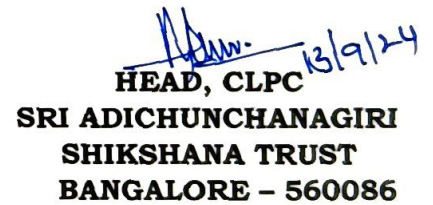 13/9/24
HEAD, CLPC
SRI ADICHUNCHANAGIRI
SHIKSHANA TRUST
BANGALORE – 560086